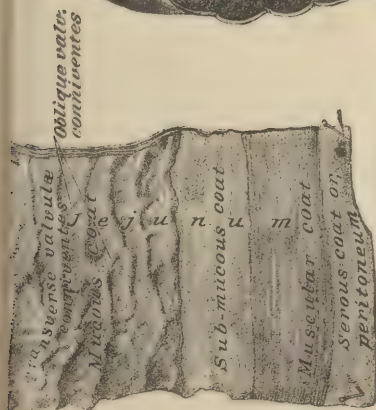 Oblique valv.
conniventes
Transverse valvulæ
conniventes
Mucous coat
Jejunum
Sub-mucous coat
Muscular coat
Serous coat or
peritoneum